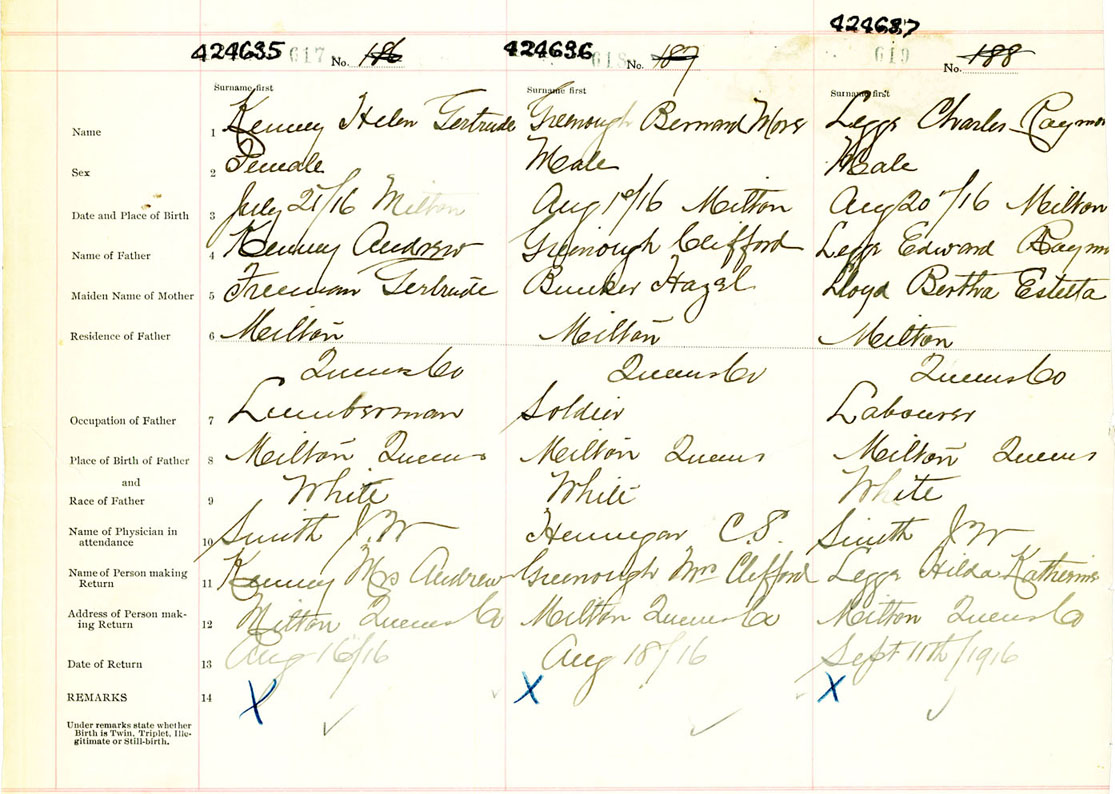 424635 617 No. 186 424636 618 No. 187 424637 619 No. 188
Surname first Surname first Surname first
Name 1 Kenney Helen Gertrude Greenough Bernard Legge Charles
Sex 2 Female Male Male
Date and Place of Birth 3 July 21/16 Milton Aug 1st/16 Milton Aug 20 /16 Milton
Name of Father 4 Kenney Andrew Greenough Clifford Legge Edward
Maiden Name of Mother 5 Freeman Gertrude Bunker Hazel Lloyd Bertha Estella
Residence of Father 6 Milton Milton Milton
Queens Co Queens Co Queens Co
Occupation of Father 7 Lumberman Soldier Labourer
Place of Birth of Father 8 Milton Queens Milton Queens Milton Queens
and
Race of Father 9 White White White
Name of Physician in
attendance 10 Smith J.W Hennigar C.S. Smith J W
Name of Person making
Return 11 Kenney Mrs Andrew Greenough Mrs Clifford Legge Hilda Katherine
Address of Person mak-
ing Return 12 Milton Queens Co Milton Queens Co Milton Queens Co
Date of Return 13 Aug 16/16 Aug 18/16 Sept 11th/1916
REMARKS 14 X X X
Under remarks state whether
Birth is Twin, Triplet, Ille-
gitimate or Still-birth.